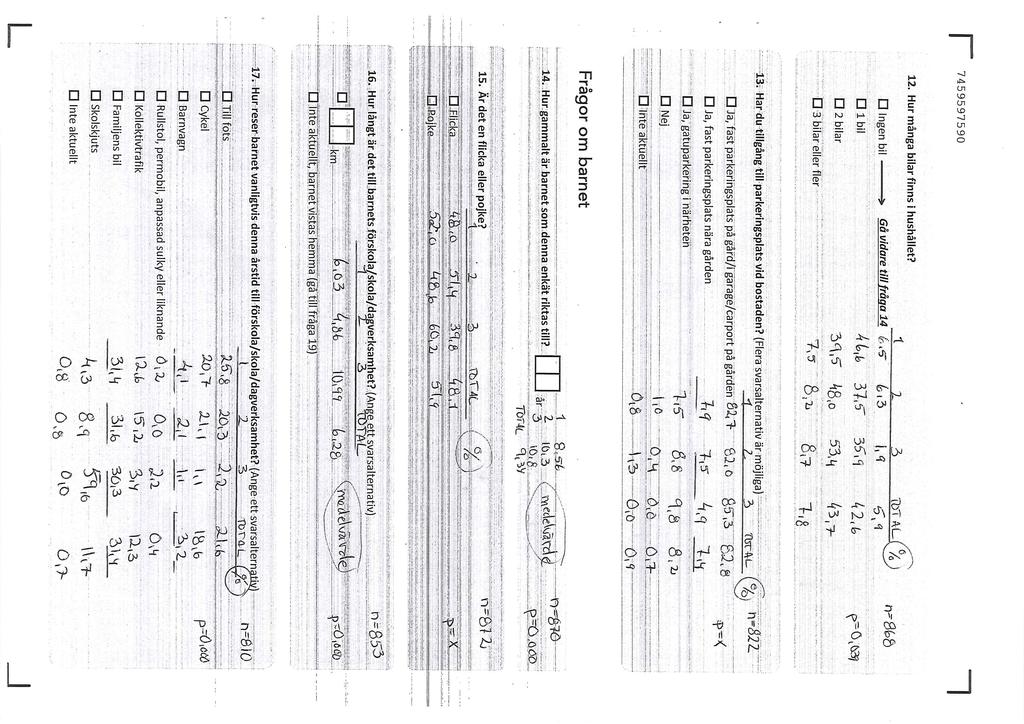 7459597590
12. Hur många bilar finns i hushållet?
1 2 3 TOTAL %
n=868
☐ Ingen bil → Gå vidare till fråga 14 6,5 6,3 1,9 5,9
☐ 1 bil 46,6 37,5 35,9 42,6 p=0,039
☐ 2 bilar 39,5 48,0 53,4 43,7
☐ 3 bilar eller fler 7,5 8,2 8,7 7,8
13. Har du tillgång till parkeringsplats vid bostaden? (Flera svarsalternativ är möjliga)
1 2 3 TOTAL % n=822
☐ Ja, fast parkeringsplats på gård/i garage/carport på gården 82,7 82,0 85,3 82,8
☐ Ja, fast parkeringsplats nära gården 7,9 7,5 4,9 7,4 p=X
☐ Ja, gatuparkering i närheten 7,5 8,8 9,8 8,2
☐ Nej 1,0 0,4 0,0 0,7
☐ Inte aktuellt 0,8 1,3 0,0 0,9
Frågor om barnet
14. Hur gammalt är barnet som denna enkät riktas till? år
1 8,56
2 10,3
3 10,8
TOTAL 9,34
medelvärde
n=870
p=0,000
15. Är det en flicka eller pojke?
1 2 3 TOTAL % n=872
☐ Flicka 48,0 51,4 39,8 48,1 p=X
☐ Pojke 52,0 48,6 60,2 51,9
16. Hur långt är det till barnets förskola/skola/dagverksamhet? (Ange ett svarsalternativ)
1 2 3 TOTAL n=853
☐ km 6,03 4,86 10,99 6,28 medelvärde p=0,000
☐ Inte aktuellt, barnet vistas hemma (gå till fråga 19)
17. Hur reser barnet vanligtvis denna årstid till förskola/skola/dagverksamhet? (Ange ett svarsalternativ)
1 2 3 TOTAL % n=810
☐ Till fots 25,8 20,3 2,2 21,6
☐ Cykel 20,7 21,1 1,1 18,6 p=0,000
☐ Barnvagn 4,1 2,1 1,1 3,2
☐ Rullstol, permobil, anpassad sulky eller liknande 0,2 0,0 2,2 0,4
☐ Kollektivtrafik 12,6 15,2 3,4 12,3
☐ Familjens bil 31,4 31,6 30,3 31,4
☐ Skolskjuts 4,3 8,9 59,6 11,7
☐ Inte aktuellt 0,8 0,8 0,0 0,7